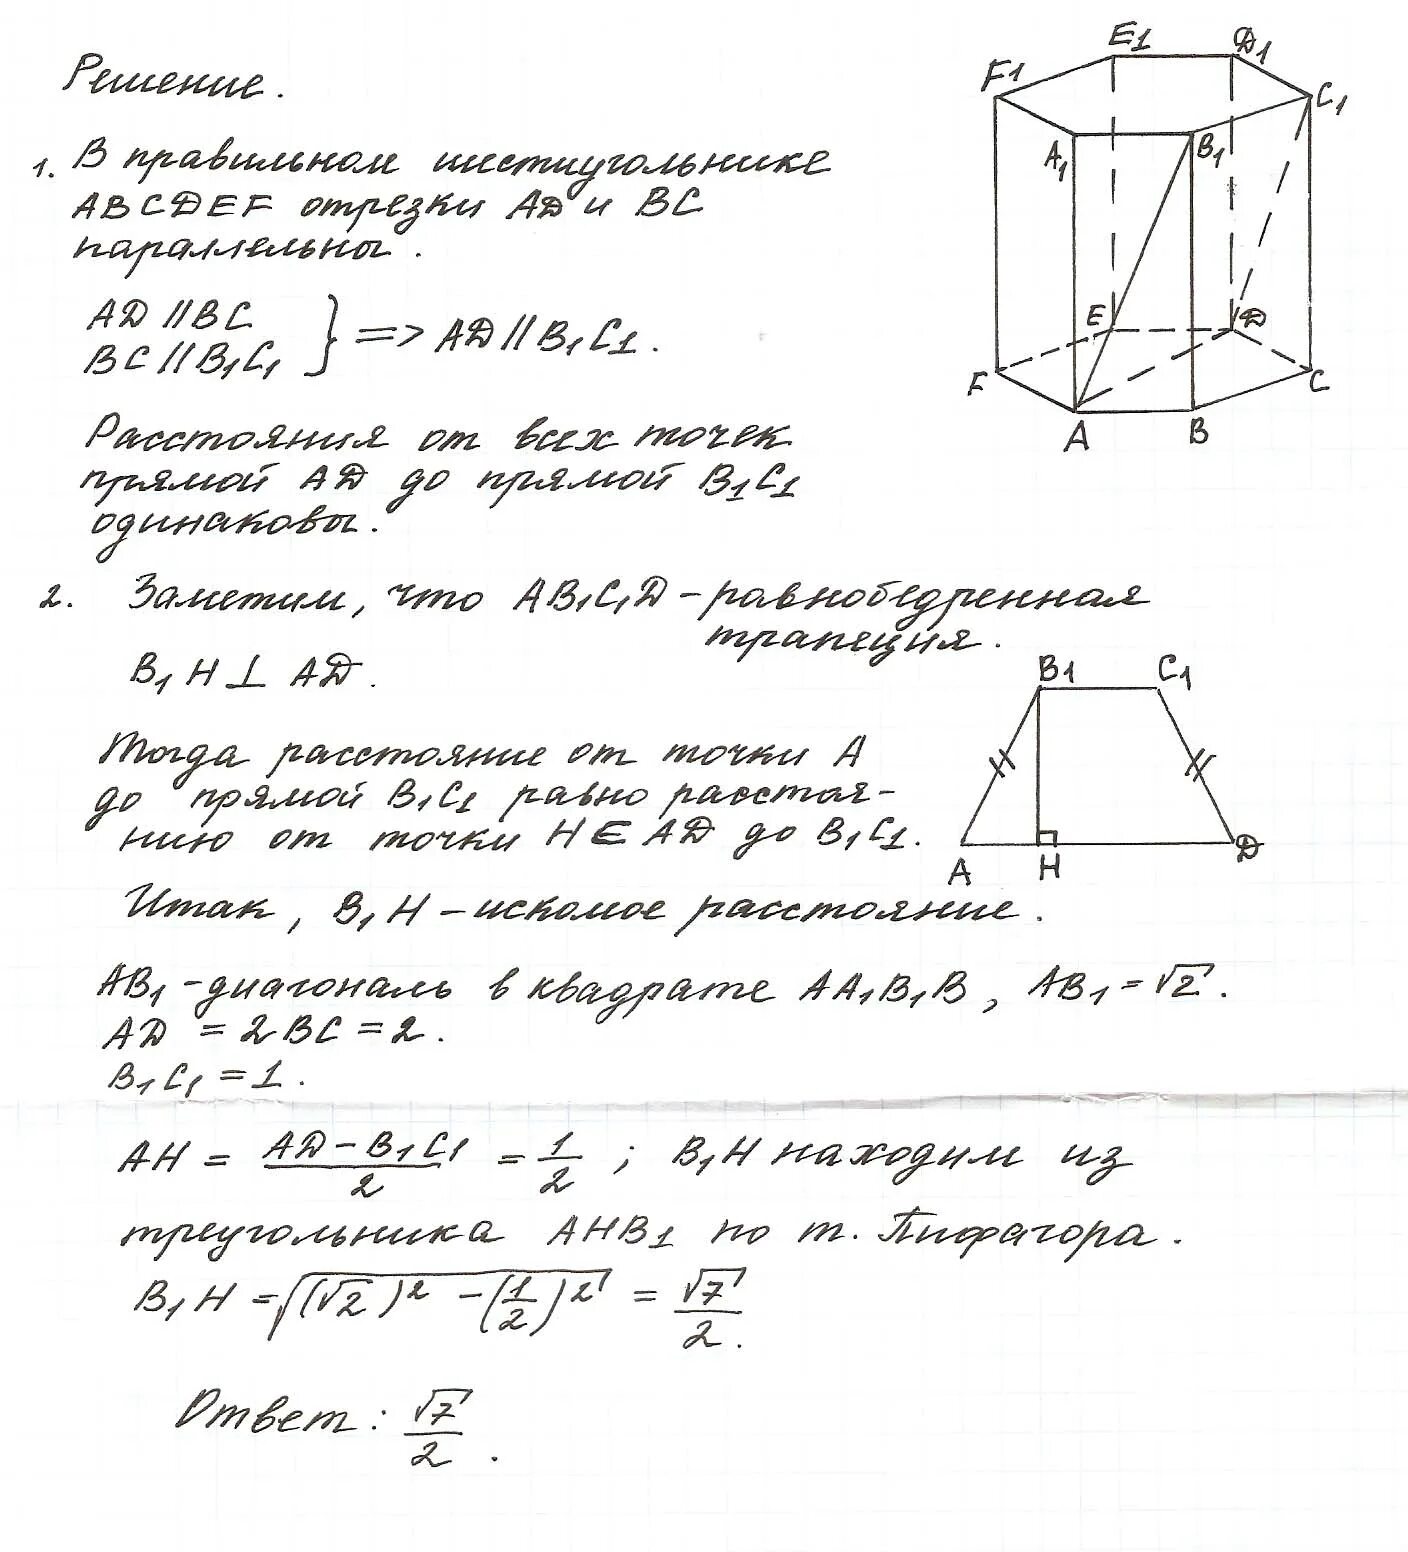 Решение.
1. В правильном шестиугольнике
ABCDEF отрезки AD и BC
параллельны.
AD || BC
BC || B₁C₁ } => AD || B₁C₁.
Расстояния от всех точек
прямой AD до прямой B₁C₁
одинаковы.
E₁ D₁
F₁ C₁
A₁ B₁
E D
F C
A B
2. Заметим, что AB₁C₁D – равнобедренная
трапеция.
B₁H ⊥ AD.
Тогда расстояние от точки A
до прямой B₁C₁ равно расстоя-
нию от точки H ∈ AD до B₁C₁.
B₁ C₁
A H D
Итак, B₁H – искомое расстояние.
AB₁ - диагональ в квадрате AA₁B₁B, AB₁ = √2.
AD = 2BC = 2.
B₁C₁ = 1.
AH = (AD – B₁C₁)/2 = 1/2; B₁H находим из
треугольника AHB₁ по т. Пифагора.
B₁H = √((√2)² – (1/2)²) = √7/2.
Ответ: √7/2.